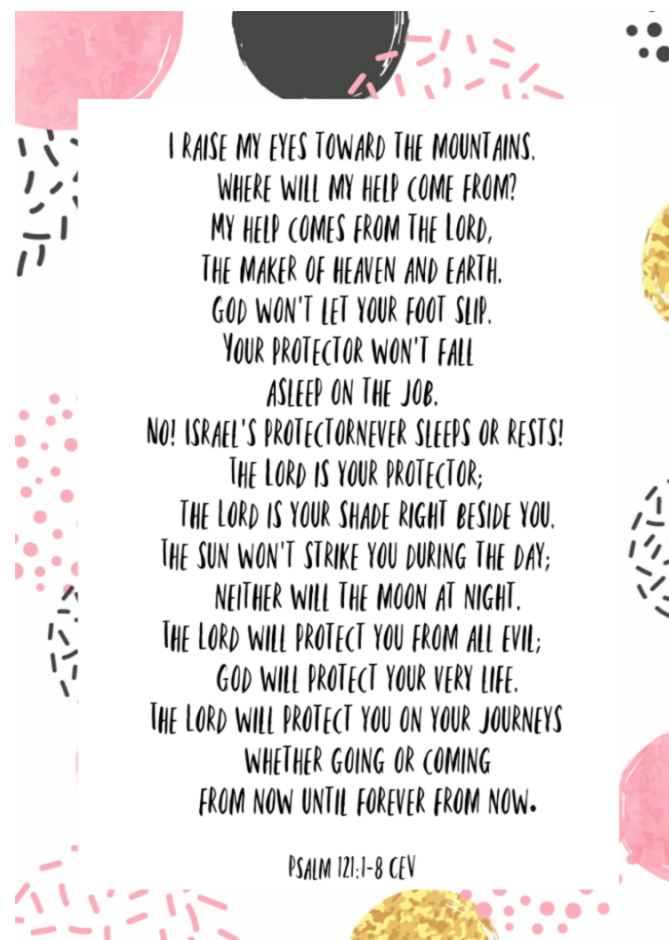 I RAISE MY EYES TOWARD THE MOUNTAINS.
WHERE WILL MY HELP COME FROM?
MY HELP COMES FROM THE LORD,
THE MAKER OF HEAVEN AND EARTH.
GOD WON'T LET YOUR FOOT SLIP.
YOUR PROTECTOR WON'T FALL
ASLEEP ON THE JOB.
NO! ISRAEL'S PROTECTORNEVER SLEEPS OR RESTS!
THE LORD IS YOUR PROTECTOR;
THE LORD IS YOUR SHADE RIGHT BESIDE YOU.
THE SUN WON'T STRIKE YOU DURING THE DAY;
NEITHER WILL THE MOON AT NIGHT.
THE LORD WILL PROTECT YOU FROM ALL EVIL;
GOD WILL PROTECT YOUR VERY LIFE.
THE LORD WILL PROTECT YOU ON YOUR JOURNEYS
WHETHER GOING OR COMING
FROM NOW UNTIL FOREVER FROM NOW.
PSALM 121:1-8 CEV